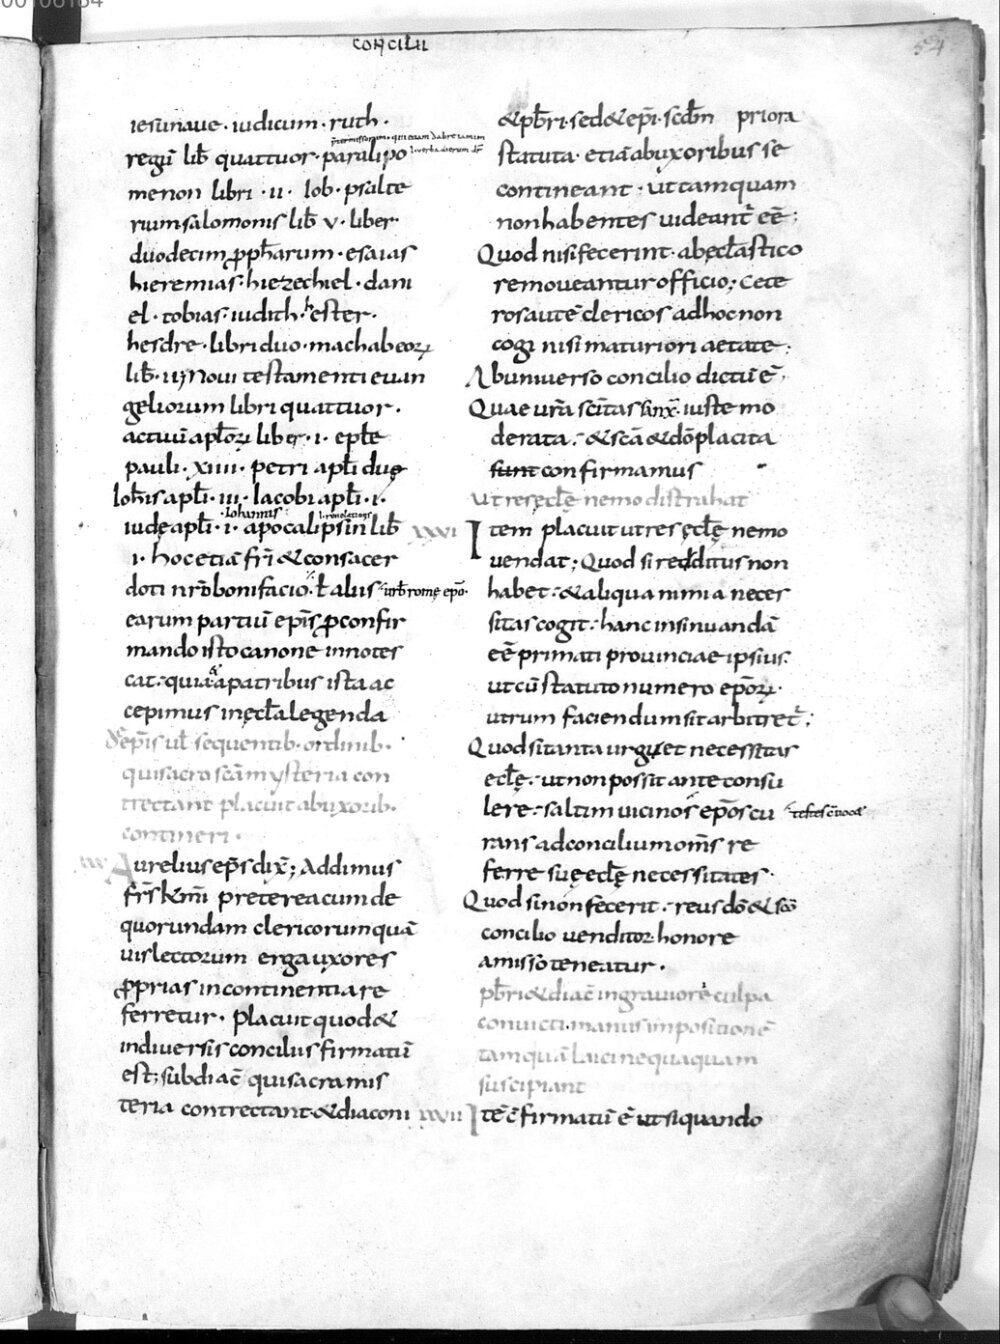 CONCILII
iesu naue · iudicum · ruth ·
regū lib̄ quattuor · paralipo
menon libri · ii · Iob · psalte
rium salomonis lib̄ v · liber
duodecim ꝓph̄arum · esaias
hieremias · hiezechiel · dani
el · tobias · iudith · hester ·
hesdre · libri duo · machabeoꝝ
lib̄ · ii · Noui testamenti euan
geliorum libri quattuor ·
actuū apl̄oꝝ liber · i · epl̄e
pauli · xiiii · petri apl̄i duę
Ioh̄is apl̄i · iii · Iacobi apl̄i · i ·
iudę apl̄i · i · apocalipsin lib̄
Iohannis
i · hoc etiā fr̄i & consacer
doti nr̄o bonifacio · ł aliis urb̄ romę ep̄o ·
earum partiū ep̄is ꝓ confir
mando isto canone innotes
cat · quia a patribus ista ac
cepimus in ęcl̄a legenda
De ep̄is ul̄ sequentib · ordinib ·
qui sacrosc̄a mysteria con
trectant placuit ab uxorib ·
contineri ·
Aurelius ep̄s dix̄; Addimus
fr̄s k̄mi preterea cum de
quorundam clericorum quā
uis lectorum erga uxores
ꝓprias incontinentia re
ferretur · placuit quod &
in diuersis conciliis firmatū
est; subdiac̄ qui sacra mis
teria contrectant & diaconi
54
& pb̄ri · sed & ep̄i · scd̄m priora
statuta · etiā ab uxoribus se
contineant · ut tamquam
non habentes uideant̄ eē;
Quod nisi fecerint · ab ecl̄astico
remoueantur officio; Cete
ros autē clericos ad hoc non
cogi nisi maturiori aetate;
Ab uniuerso concilio dictū ē ·
Quae ur̄a sc̄itas sinx̄ · iuste mo
derata · & sc̄a & dō placita
sunt confirmamus
Ut res ęcl̄ę nemo distrahat
xxvi Item placuit ut res ęcl̄ę nemo
uendat; Quod si redditus non
habet · & aliqua nimia neces
sitas cogit · hanc insinuandā
eē primati prouinciae ipsius ·
ut cū statuto numero ep̄oꝝ ·
utrum faciendum sit arbitret̄;
Quod si tanta urguet necessitas
ecl̄ę · ut non possit ante consu
lere · saltim uicinos ep̄os cu
rans ad concilium om̄s re
ferre suę ecl̄ę necessitates ·
Quod si non fecerit · reus dō & sc̄o
concilio uenditor honore
amisso teneatur ·
pb̄ri & diac̄ in grauiore culpa
conuicti · manus impositionē
tamquā laici nequaquam
suscipiant
xxvii Itē c̄firmatū ē ut si quando